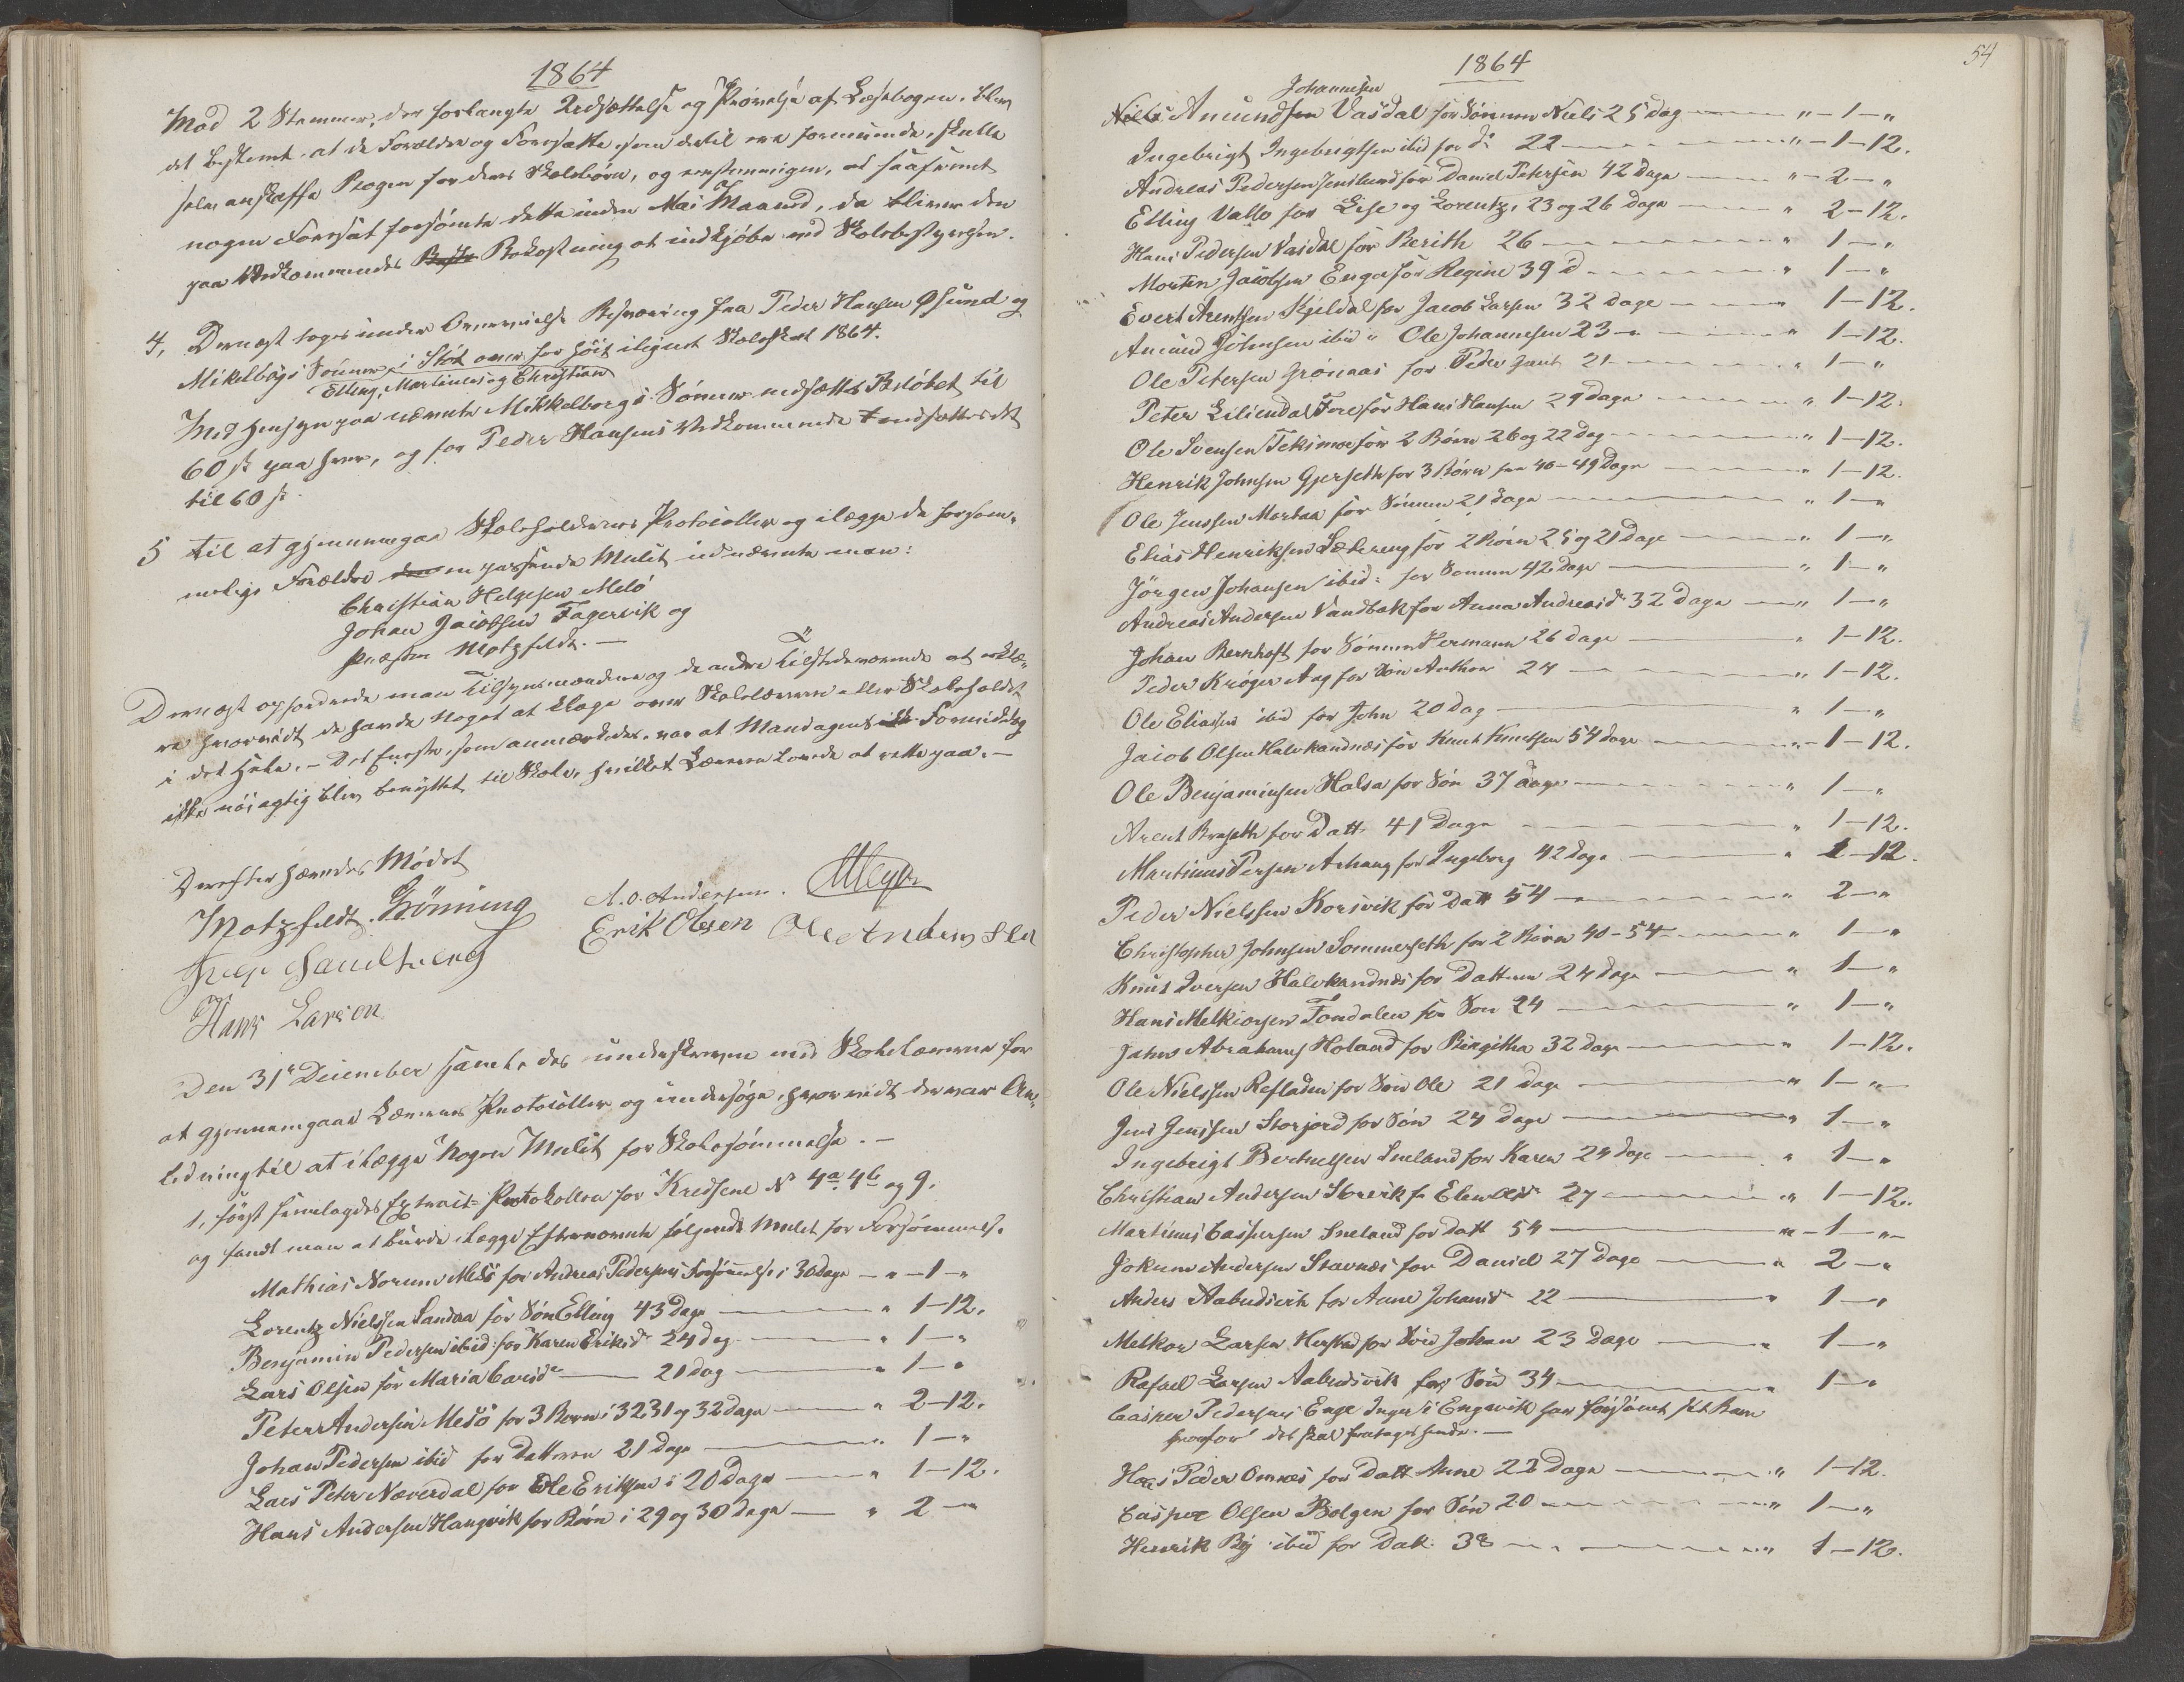 1864
Mod 2 Stemmer, der forlangte Udsættelse og Prøvelse af Læsebogen, blev
det bestemt, at de Forældre og Foresatte, som dertil ere formuende, skulle
selv anskaffe Bogen for deres Skolebørn, og eenstemmigen, at saafremt
nogen Foresat forsømte dette inden Mai Maaned, da bliver den
paa Vedkommendes Bekostning at indkjøbe ved Skolebestyrelsen.
4, Dernæst toges under Overveielse Besværing fra Peder Hansen Øsund og
Mikelborgs Sønner i Støt over for høit ilignet Skoleskat 1864.
Elling, Martinus og Christian
Med Hensyn paa nævnte Mikkelborgs Sønner nedsættes Beløbet til
60 s paa hver, og for Peder Hansens Vedkommende nedsættes det
til 60 s.
5 til at gjennemgaa Skoleholdernes Protocoller og ilægge de forsøm-
melige Forældre en passende Mulct udnævnte man:
Christian Helgesen Melø
Johan Jacobsen Fagervik og
Præsten Motzfeldt. —
Dernæst opfordrede man Tilsynsmændene og de andre Tilstedeværende at erklæ-
re hvorvidt de havde Noget at klage over Skolelærerne eller Skoleholdet
i det Hele. — Det Eneste, som anmærkedes, var at Mandagens Formiddag
ikke nøiagtig blev benyttet til Skole, hvilket Læreren lovede at rette paa. —
Derefter hævedes Mødet
Motzfeldt. Grönning A. O. Andersen. Meyer
Erik Olsen Ole Andersen
Jeep Sandberg
Hans Larsen
Den 31t December samledes undertegnede med Skolelærerne for
at gjennemgaae Lærernes Protocoller og undersøge, hvorvidt der var An-
ledning til at ilægge Nogen Mulct for Skoleforsømmelse. —
1, først fremlagdes Extract-Protokollen for Kredsene No 4a, 4b og 9.
og fandt man at burde ilægge Efternævnte følgende Mulct for Forsømmelse.
Mathias Norum Melö for Andreas Pedersens Forsömmelse i 30 dage — " — 1 — "
Lorentz Nielsen Sandaa for Søn Elling 43 Dage — " 1—12.
Benjamin Pedersen ibid: for Karen Eriksdr 24 dag — " 1 — "
Lars Olsen for Maria Larsdr — 21 dag — " 1 — "
Peter Andersen Melö for 3 Børn i 32, 31 og 32 dage — " 2—12.
Johan Pedersen ibid for Datteren 21 dage — " 1 — "
Lars Peter Næverdal for Ole Eriksen i 20 Dage — " 1—12.
Hans Andersen Haugvik for Børn i 29 og 30 dage — " 2 — "
54
1864
Johannesen
Amund Vasdal for Sønnen Niels 25 dag — " — 1 — "
Ingebrigt Ingebrigtsen ibid for do 22 — " — 1—12.
Andreas Pedersen Jenslund for Daniel Petersen 42 Dage — " — 2 — "
Elling Valle for Lise og Lorentz, 23 og 26 Dage — " 2—12.
Hans Pedersen Vasdal for Berith 26 — " 1 — "
Morten Jacobsen Enga for Regine 39 d — " 1 — "
Evert Arentsen Kjeldal for Jacob Larsen 32 dage — " 1—12.
Amund Johnsen ibid " Ole Johannesen 23 — " 1—12.
Ole Petersen Grönaas for Peder Gaut 21 — " 1 — "
Peter Liliendal Fore for Hans Hansen 29 dage — " 1—12.
Ole Svensen Teksmo for 2 Börn 26 og 22 dag — " 1—12.
Henrik Johnsen Gjerseth for 3 Børn fra 40—49 Dage — " 1—12.
Ole Jenssen Mertaa for Sønnen 21 dage — " 1 — "
Elias Henriksen Sætereng for 2 Börn 25 og 21 Dage — " 1 — "
Jörgen Johansen ibid: for Sønnen 42 Dage — " 1 — "
Andreas Andersen Vandbak for Anna Andreasdr 32 Dage — " 1 — "
Johan Bernhoft for Sønnen Hermann 26 dage — " 1—12.
Peder Kröger Aag for Søn Anthon 24 — " 1—12.
Ole Eliassen ibid for John 20 dag — " 1 — "
Jacob Olsen Halvkandnæs for Knut Knutsen 54 dage — " — 1—12.
Ole Benjaminsen Halsa for Søn 37 dage — " 1 — "
Arent Braseth for Datt. 41 Dage — " 1—12.
Martinus Persen Aahaug for Ingeborg 42 Dage — " 1—12.
Peder Nielssen Korsvik for Datt 54 — " 2 — "
Christopher Johnsen Sommerseth for 2 Börn 40—54 — " 1 — "
Knut Iversen Halvkandnæs for Datteren 24 Dage — " 1 — "
Hans Melkiorsen Fondalen for Søn 24 — " 1 — "
Johns Abrahams Holand for Birgitha 32 Dage — " 1—12.
Ole Nielssen Refladen for Søn Ole 21 dage — " 1 — "
Jens Jenssen Storjord for Søn 24 dage — " 1 — "
Ingebrigt Berthelsen Sneland for Karen 24 dage — " 1 — "
Christian Andersen Storvik for Elen 27 — " 1—12.
Martinus Caspersen Sneland for Datt 54 — " — 1 — "
Jokum Andersen Stavnæs for Daniel 27 Dage — " 2 — "
Anders Aabudsvik for Anne Johansdr 22 — " 1 — "
Melkor Larsen for Søn Johan 23 Dage — " 1 — "
Rafael Larsen Aabudsvik for Søn 34 — " 1 — "
Casper Pedersens Enge Inger i Engavik har forsömt sit Barn
hvorfor det skal fratages hende. —
Hans Peder Ornæs for Datt Anne 22 Dage — " 1—12.
Casper Olsen Bolgen for Søn 20 — " 1 — "
Henrik By ibid for Datt: 38 — " 1—12.